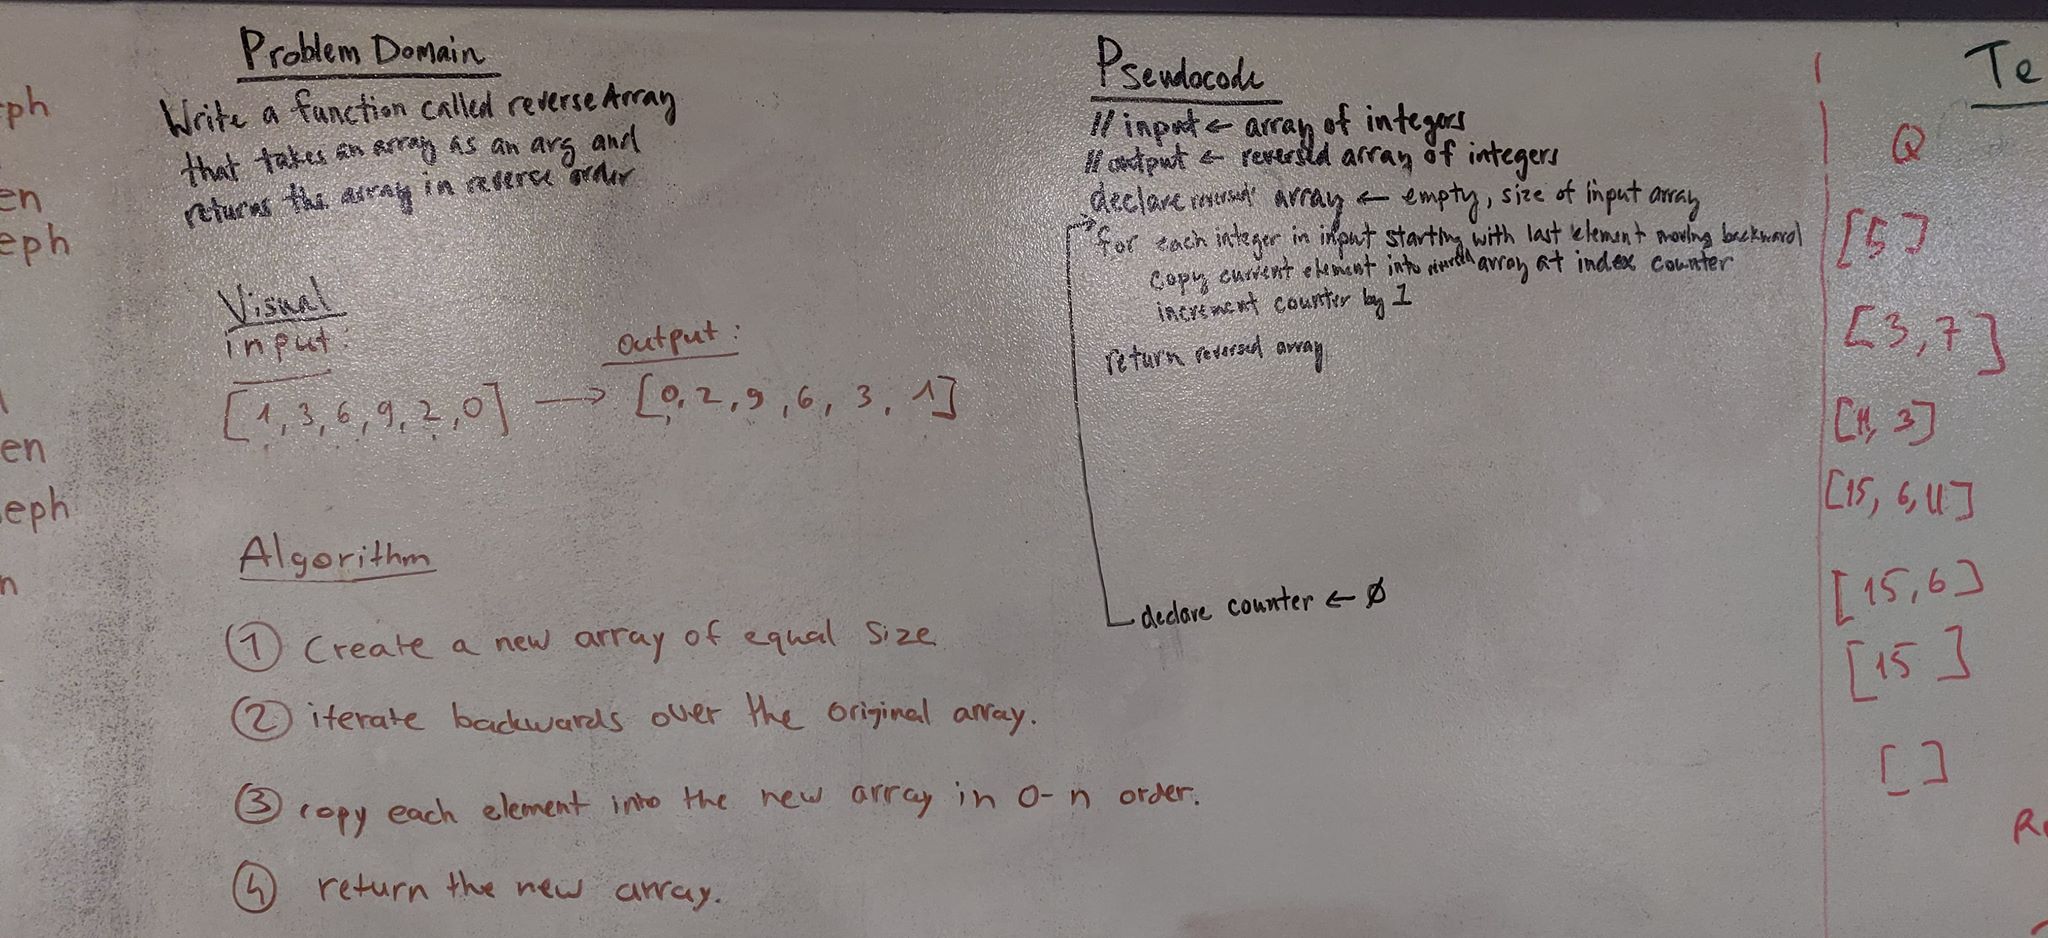 Problem Domain
Write a function called reverseArray
that takes an array as an arg and
returns the array in reverse order
Visual
input:
[1,3,6,9,2,0] → output:
[0,2,9,6,3,1]
Algorithm
① Create a new array of equal size
② iterate backwards over the original array.
③ copy each element into the new array in 0-n order.
④ return the new array.
Pseudocode
// input ← array of integers
// output ← reversed array of integers
declare reversed array ← empty, size of input array
for each integer in input starting with last element moving backward
copy current element into reversed array at index counter
increment counter by 1
return reversed array
declare counter ← Ø
Te
Q
[5]
[3,7]
[11, 3]
[15, 6, 11]
[15,6]
[15]
[ ]
ph
en
eph
en
eph
n